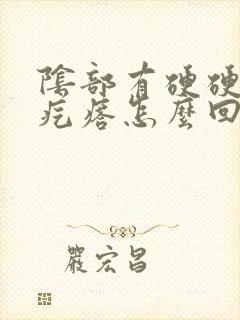 陰部有硬硬
疙瘩怎麼回
嚴宏昌